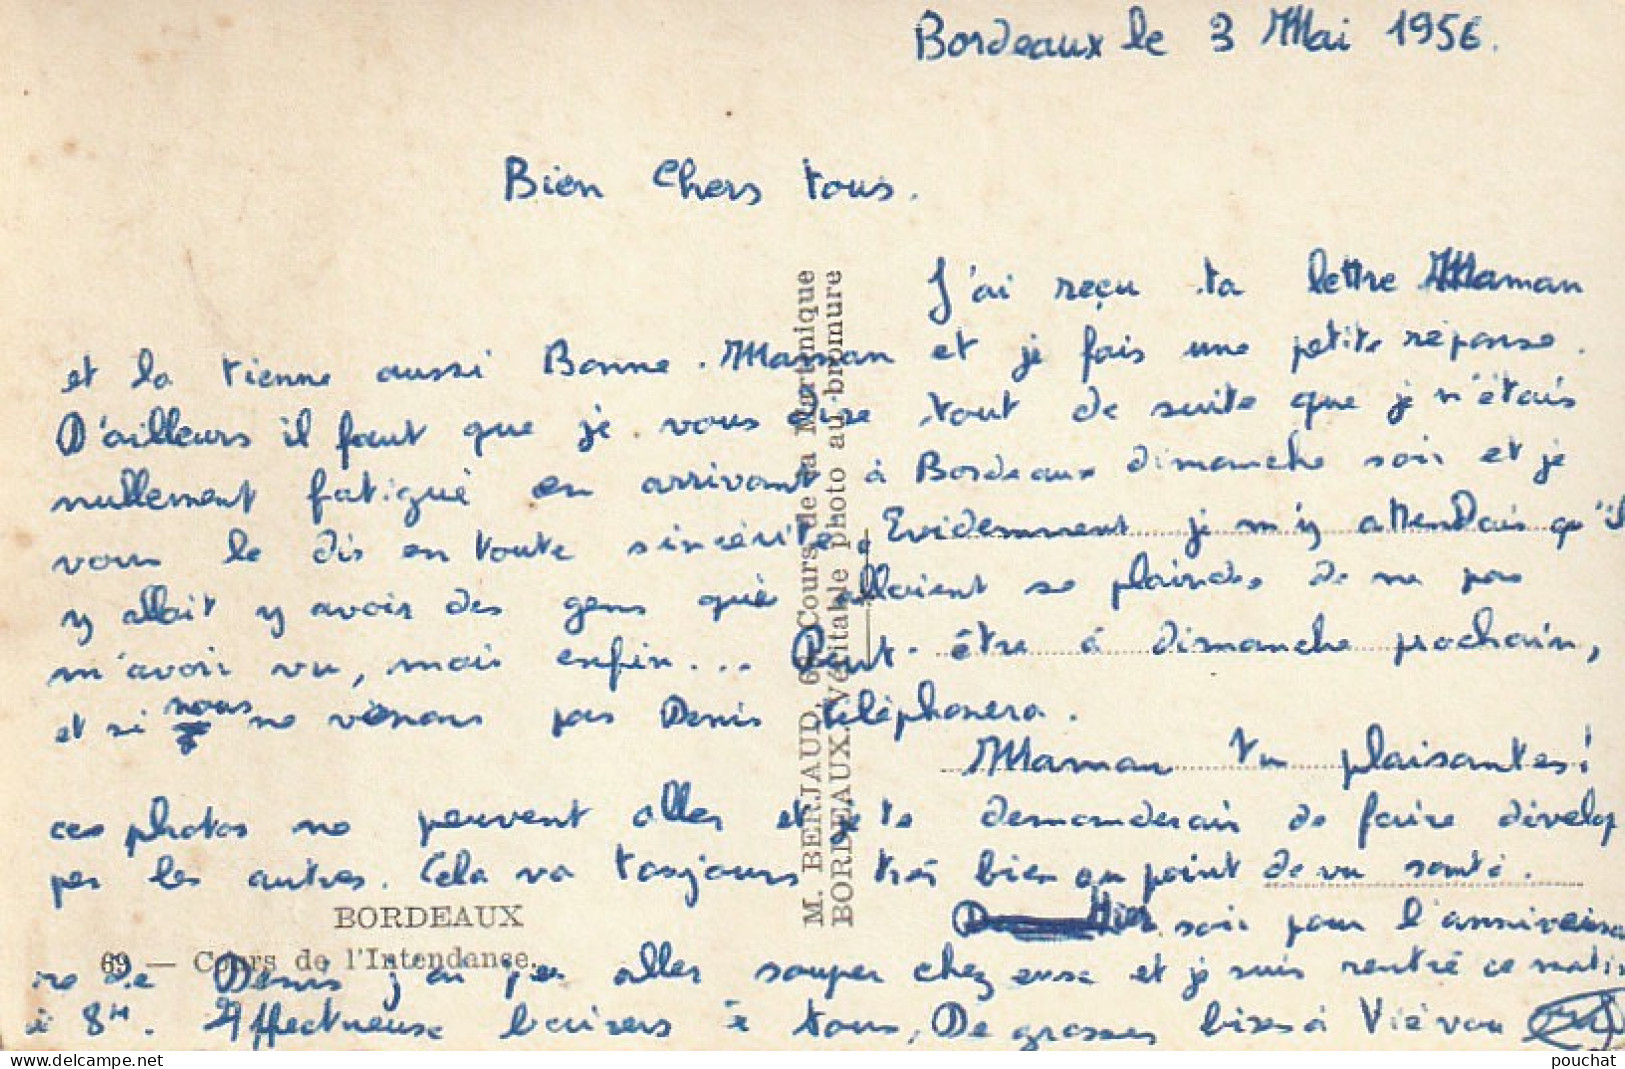 Bordeaux le 3 Mai 1956.
Bien Chers tous.
J'ai reçu ta lettre Maman
et la tienne aussi Bonne. Maman et je fais une petite réponse.
D'ailleurs il faut que je vous dise tout de suite que je n'étais
nullement fatigué en arrivant à Bordeaux dimanche soir et je
vous le dis en toute sincérité. Evidemment je m'y attendais qu'il
y allait y avoir des gens qui allaient se plaindes de ne pas
m'avoir vu, mais enfin... Peut-être à dimanche prochain,
et si nous ne venons pas Denis téléphonera.
Maman tu plaisantes!
ces photos ne peuvent aller et je te demanderais de faire dévelop
per les autres. Cela va toujours très bien au point de vu santé.
Hier soir pour l'anniversa
ire de Denis j'ai pu aller souper chez eux et je suis rentré ce matin
à 8H. Affectueux baisers à tous, De grosses bises à
BORDEAUX
69 — Cours de l'Intendance.
M. BERJAUD, Cours de la Martinique
BORDEAUX. Véritable photo au bromure
www.delcampe.net
pouchat